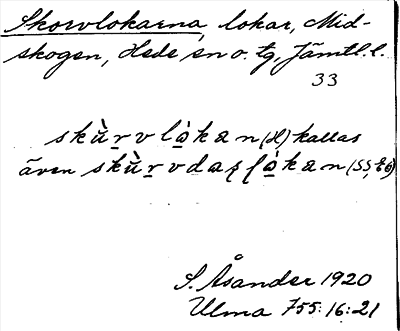 Skorvlokarna, lokar, Mid-
skogen, Hede sn o. tg, Jämtl. l.
33
skùrvlòkan (H) kallas
även skùrvdaʂʃòkan (SS, E6)
S. Åsander 1920
Ulma 755:16:21